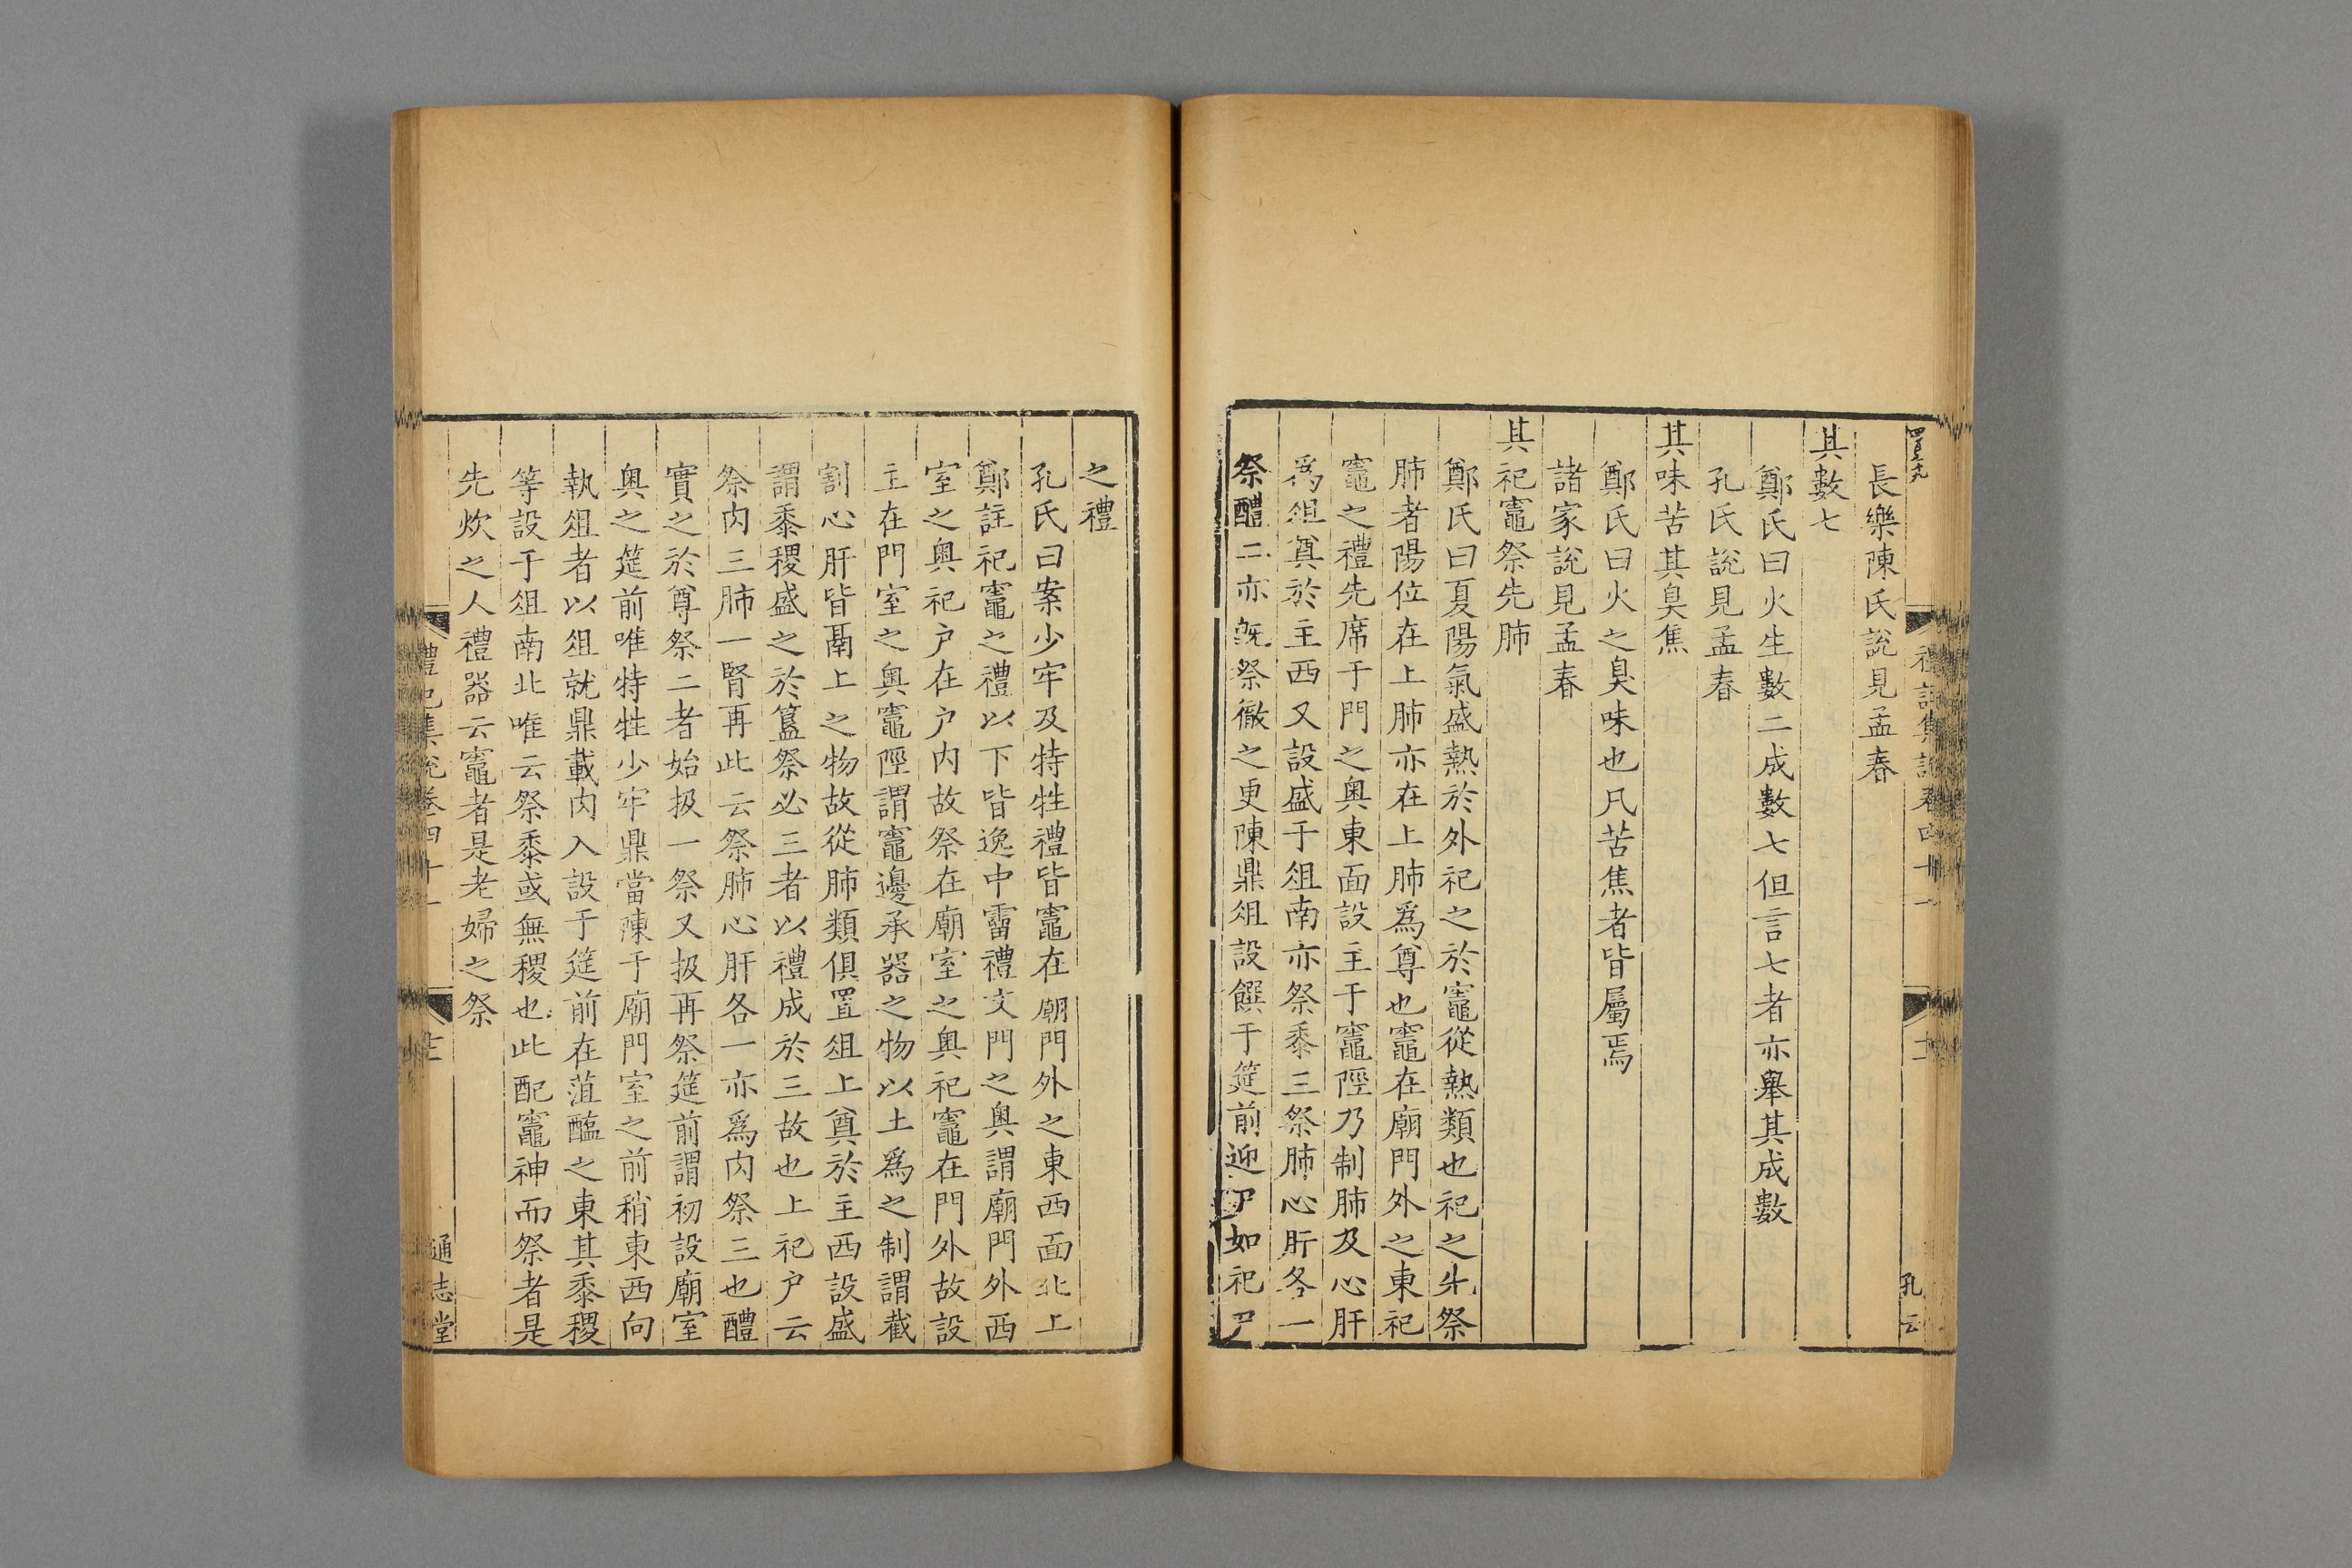 長樂陳氏說見孟春
其數七
鄭氏曰火生數二成數七但言七者亦舉其成數
孔氏說見孟春
其味苦其臭焦
鄭氏曰火之臭味也凡苦焦者皆屬焉
諸家說見孟春
其祀竈祭先肺
鄭氏曰夏陽氣盛熱於外祀之於竈從熱類也祀之先祭
肺者陽位在上肺亦在上肺爲尊也竈在廟門外之東祀
竈之禮先席于門之奧東面設主于竈陘乃制肺及心肝
爲俎奠於主西又設盛于俎南亦祭黍三祭肺心肝各一
祭醴二亦旣祭徹之更陳鼎俎設饌于筵前迎尸如祀戸
之禮
孔氏曰案少牢及特牲禮皆竈在廟門外之東西面北上
鄭註祀竈之禮以下皆逸中霤禮文門之奧謂廟門外西
室之奧祀户在户内故祭在廟室之奧祀竈在門外故設
主在門室之奧竈陘謂竈邊承器之物以土爲之制謂截
割心肝皆鬲上之物故從肺類俱置俎上奠於主西設盛
謂黍稷盛之於簋祭必三者以禮成於三故也上祀户云
祭肉三肺一腎再此云祭肺心肝各一亦爲肉祭三也醴
實之於尊祭二者始扱一祭又扱再祭筵前謂初設廟室
奧之筵前唯特牲少牢鼎當陳于廟門室之前稍東西向
執俎者以俎就鼎載肉入設于筵前在菹醢之東其黍稷
等設于俎南北唯云祭黍或無稷也此配竈神而祭者是
先炊之人禮器云竈者是老婦之祭
禮記集說卷四十一
通志堂